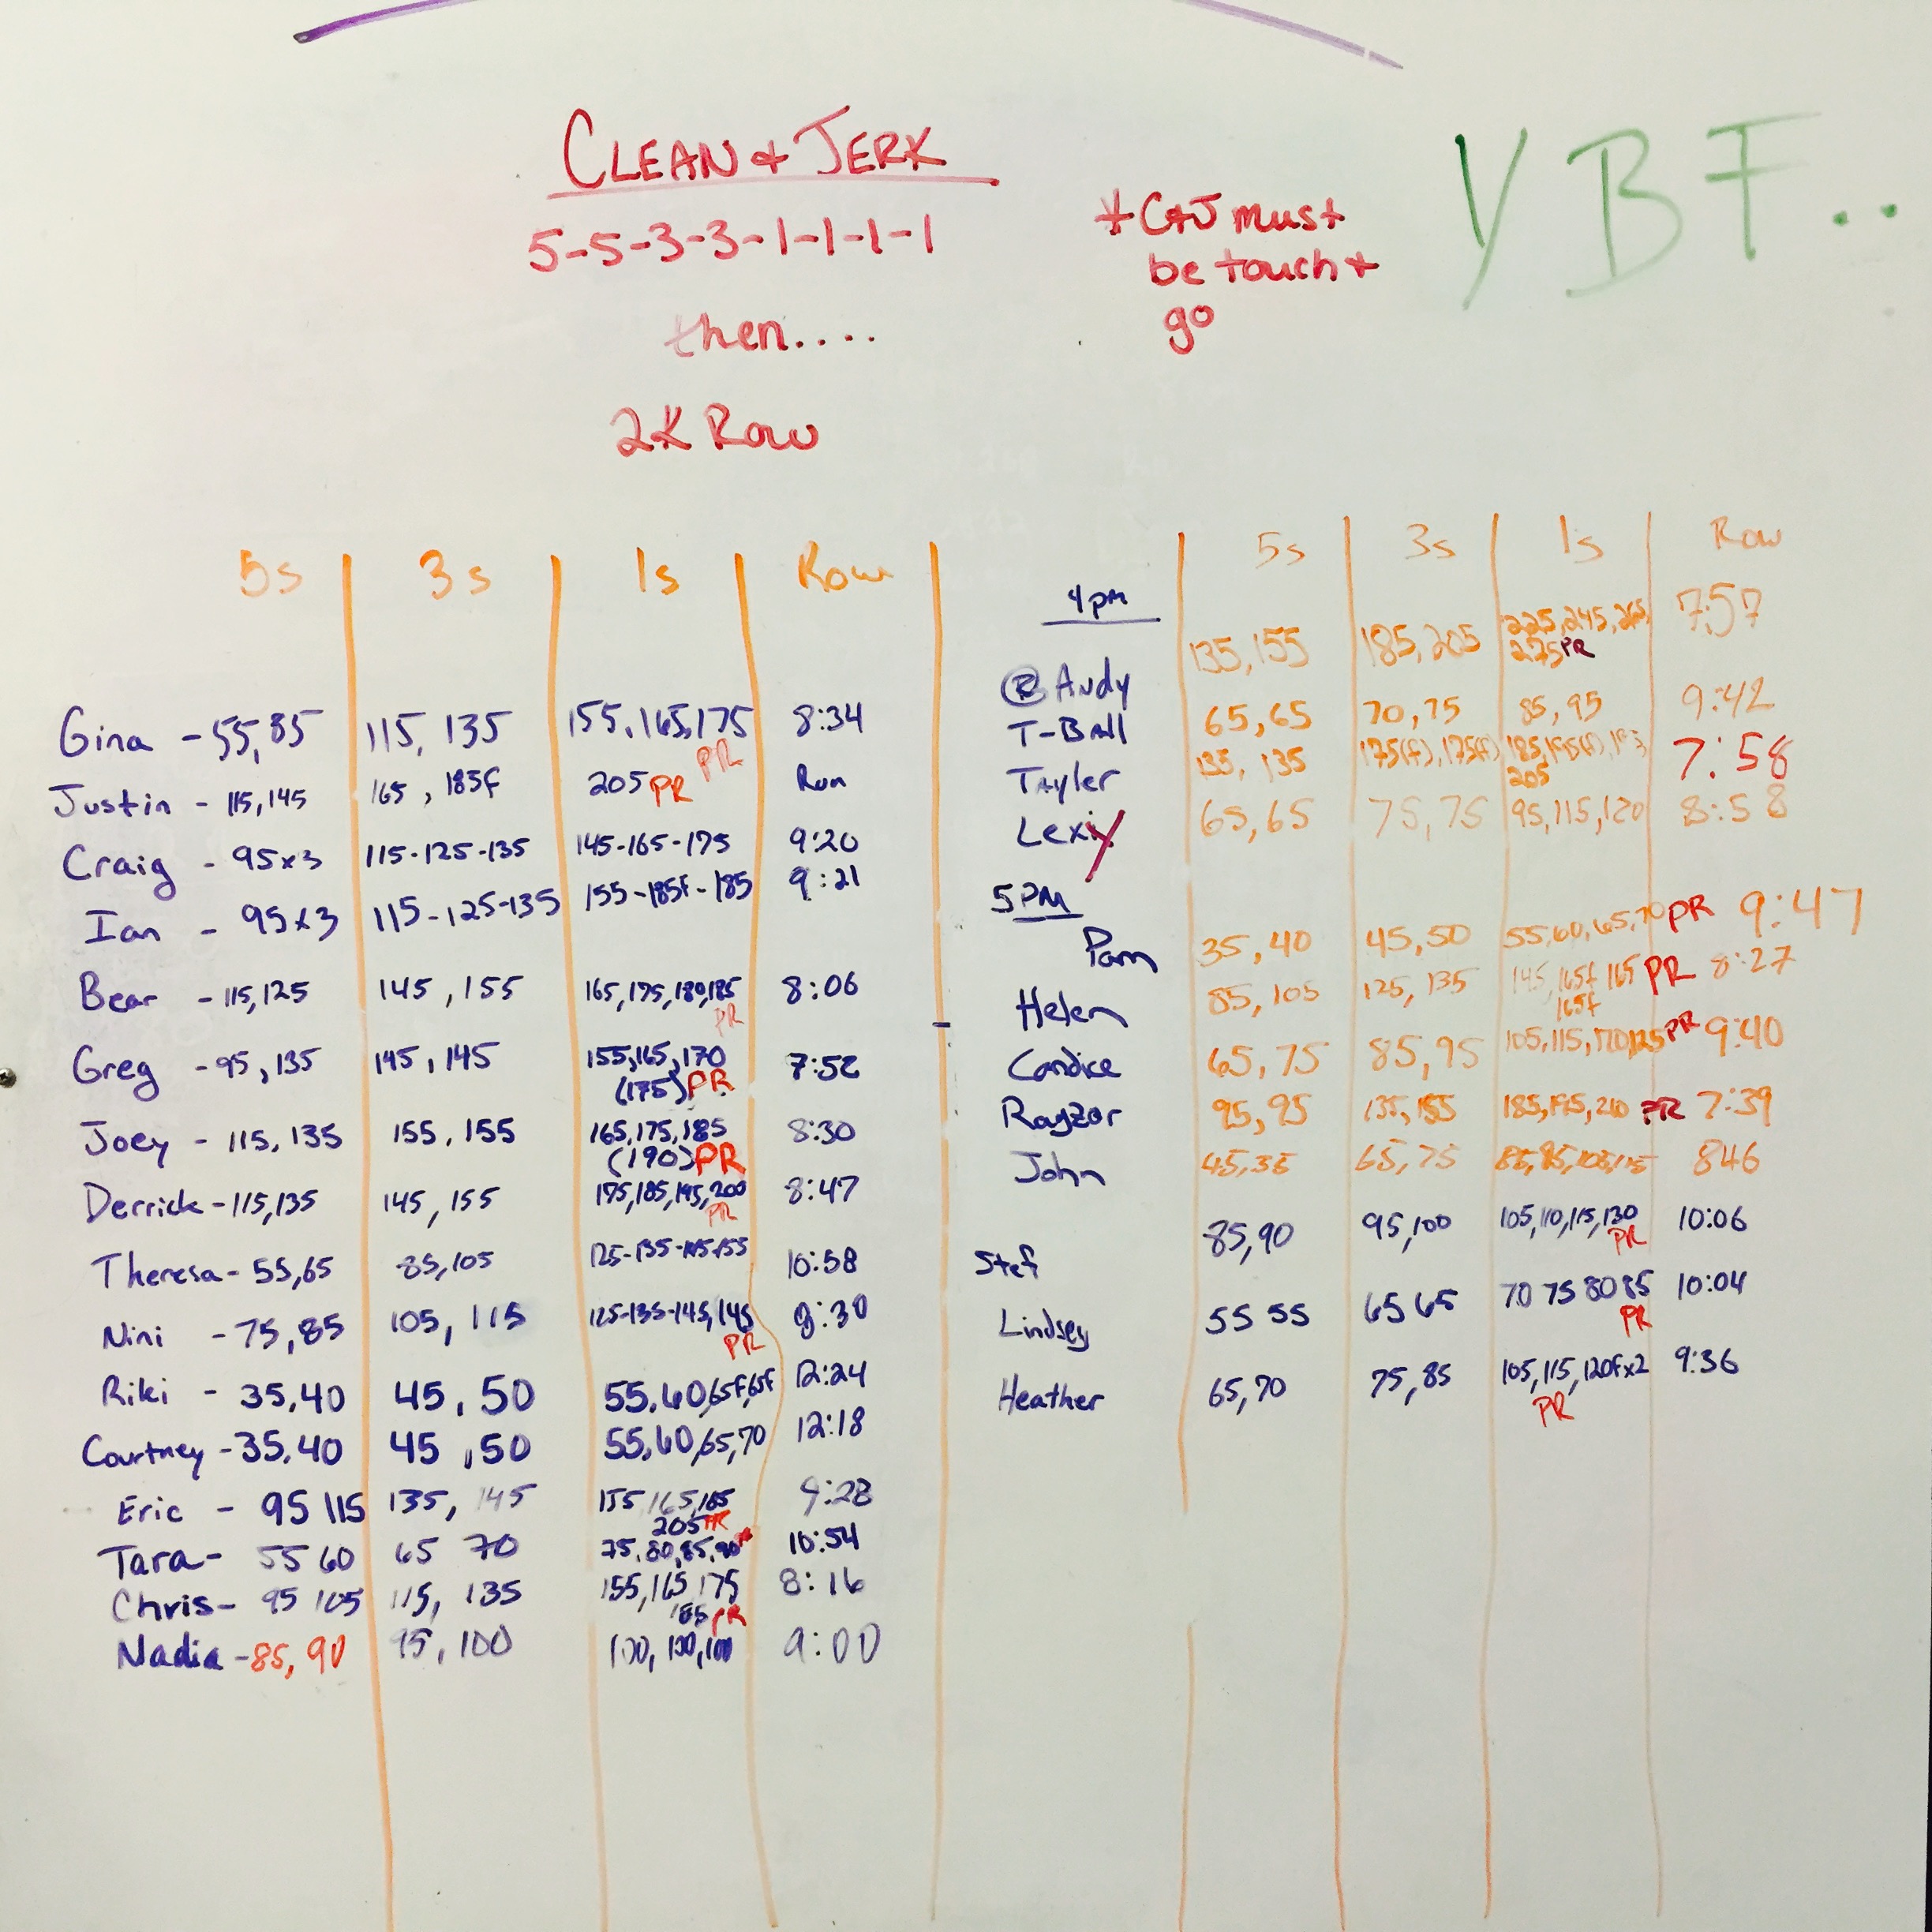 CLEAN & JERK
5-5-3-3-1-1-1-1
then....
2K Row
*C&J must
be touch +
go
YBF..
5s 3s 1s Row
Gina - 55,85 115, 135 155,165,175 PR 8:34
Justin - 115,145 165, 185f 205 PR Run
Craig - 95x3 115-125-135 145-165-175 9:20
Ian - 95x3 115-125-135 155-185f-185 9:21
Bear - 115,125 145, 155 165,175,180,185 PR 8:06
Greg - 95, 135 145, 145 155,165,170 7:52
(175) PR
Joey - 115, 135 155, 155 165,175,185 8:30
(190) PR
Derrick - 115,135 145, 155 175,185,195,200 PR 8:47
Theresa - 55,65 85,105 125-135-145,155 10:58
Nini - 75,85 105, 115 125-135-145,145 PR :30
Riki - 35,40 45, 50 55,60,65f,65f 12:24
Courtney - 35,40 45, 50 55,60,65,70 12:18
Eric - 95 115 135, 145 155 165,185 9:28
205 PR
Tara - 55 60 65 70 75,80,85,90 10:54
Chris - 95 105 115, 135 155,165 175 8:16
185 PR
Nadia - 85, 90 95, 100 100, 100,100 9:00
5s 3s 1s Row
4pm
Andy 135,155 185,205 225,245,265, 7:57
275 PR
T-Ball 65,65 70,75 85,95 9:42
Tayler 135, 135 175(f), 175(f) 185,195(f), 7:58
205
Lexy 65,65 75,75 95,115,120 8:58
5PM
Pam 35,40 45,50 55,60,65,70 PR 9:47
Helen 85, 105 125, 135 145, 165f 165 PR 8:27
165f
Candice 65,75 85,95 105,115,120,125 PR 9:40
Rayzor 95,95 135,155 185,195,210 PR 7:39
John 45,35 65,75 85,95,105,115 846
Stef 85,90 95,100 105,110,115,130 PR 10:06
Lindsey 55 55 65 65 70 75 80 85 PR 10:04
Heather 65,70 75,85 105,115,120fx2 9:36
PR